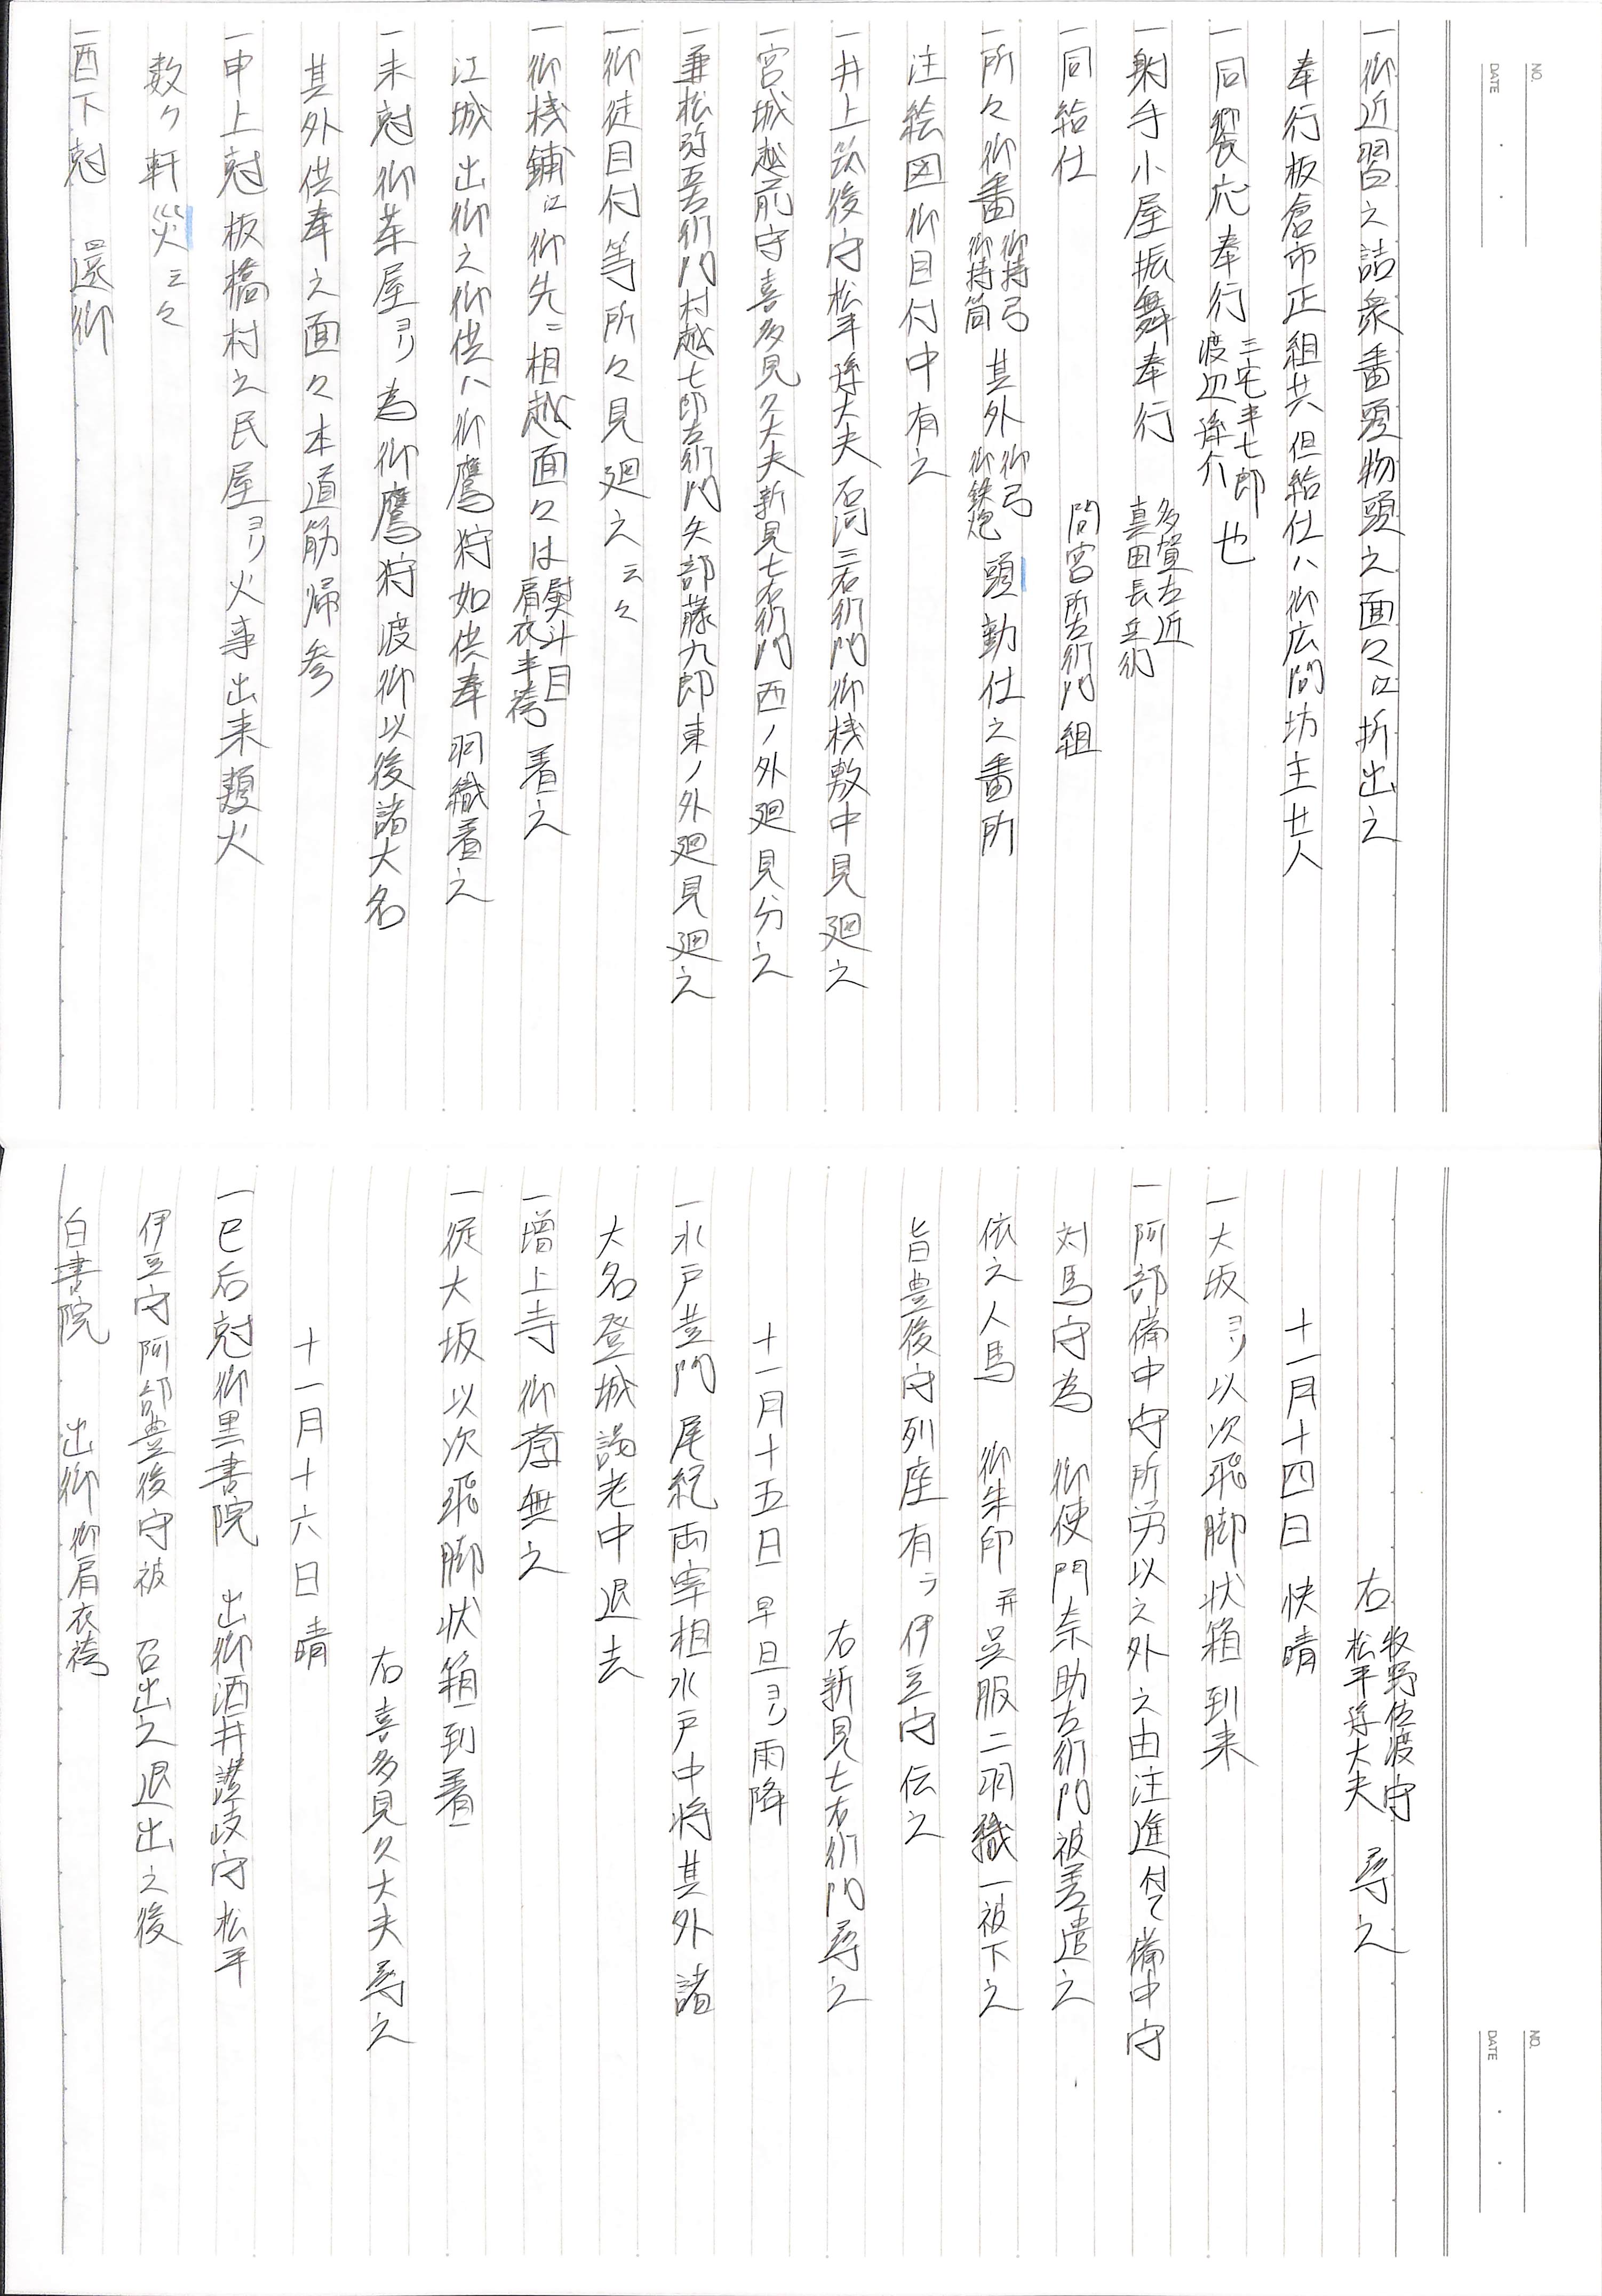 NO.
DATE
一御近習之詰衆番頭物頭之面々江折出之
奉行板倉市正組共但給仕ハ御広間坊主廿人
一同饗応奉行 三宅半七郎 渡辺孫介 也
一射手小屋振舞奉行 多賀左近 真田長兵衛
一同給仕 間宮所左衛門組
一所々御番 御持弓 御持筒 其外 御弓 御鉄炮 頭勤仕之番所
注絵図御目付中有之
一井上筑後守松平孫大夫石河三右衛門御桟敷中見廻之
一宮城越前守喜多見久大夫新見七右衛門西ノ外廻見分之
一兼松弥五左衛門村越七郎左衛門矢部藤九郎東ノ外廻見廻之
一御徒目付等所々見廻之云々
一御桟鋪江御先ニ相越面々は 熨斗目 肩衣半袴 着之
江城出御之御供ハ御鷹狩如供奉羽織着之
一未尅御茶屋ヨリ為御鷹狩渡御以後諸大名
其外供奉之面々本道筋帰参
一申上尅板橋村之民屋ヨリ火事出来類火
数ケ軒災云々
一酉下尅 還御
NO.
DATE
右 牧野佐渡守 松平孫大夫 尋之
十一月十四日 快晴
一大坂ヨリ以次飛脚状箱到来
一阿部備中守所労以之外之由注進付て備中守
対馬守為 御使門奈助左衛門被差遣之
依之人馬 御朱印并呉服二羽織一被下之
旨豊後守列座有テ伊豆守伝之
右新見七右衛門尋之
十一月十五日 早旦ヨリ雨降
一水戸黄門 尾紀両宰相水戸中将其外諸
大名登城謁老中退去
一増上寺 御参無之
一従大坂以次飛脚状箱到着
右喜多見久大夫尋之
十一月十六日 晴
一巳后尅御黒書院 出御酒井讃岐守松平
伊豆守阿部豊後守被 召出之退出之後
白書院 出御御肩衣袴